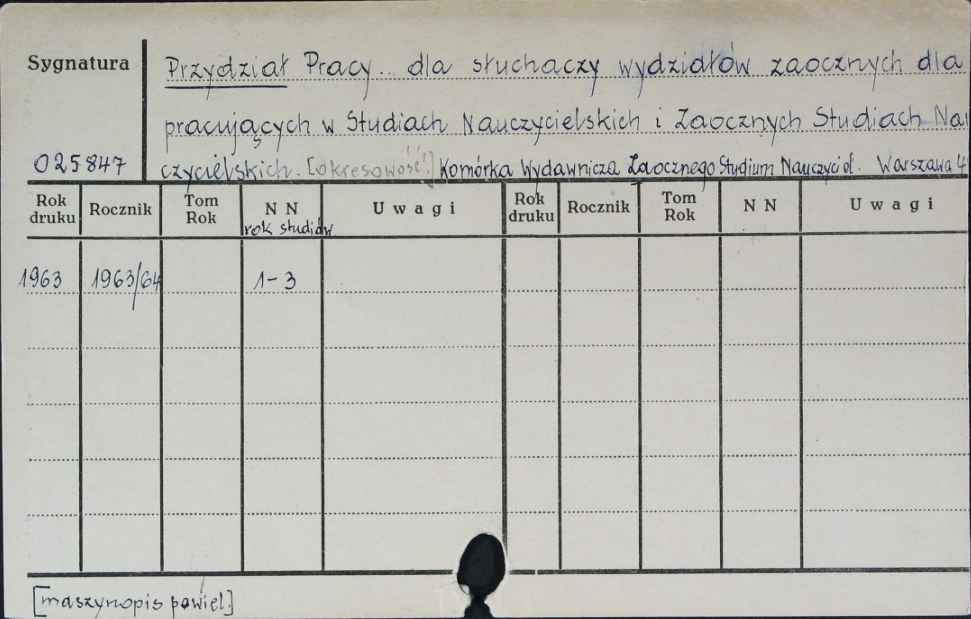 Sygnatura Przydział Pracy... dla słuchaczy wydziałów zaocznych dla
pracujących w Studiach Nauczycielskich i Zaocznych Studiach Nau
025847 czycielskich. [okresowość!] Komórka Wydawnicza Zaocznego Studium Nauczyciel. Warszawa
Rok druku Rocznik Tom Rok N N Uwagi Rok druku Rocznik Tom Rok N N Uwagi
rok studiów
1963 1963/64 1-3
[maszynopis powiel.]